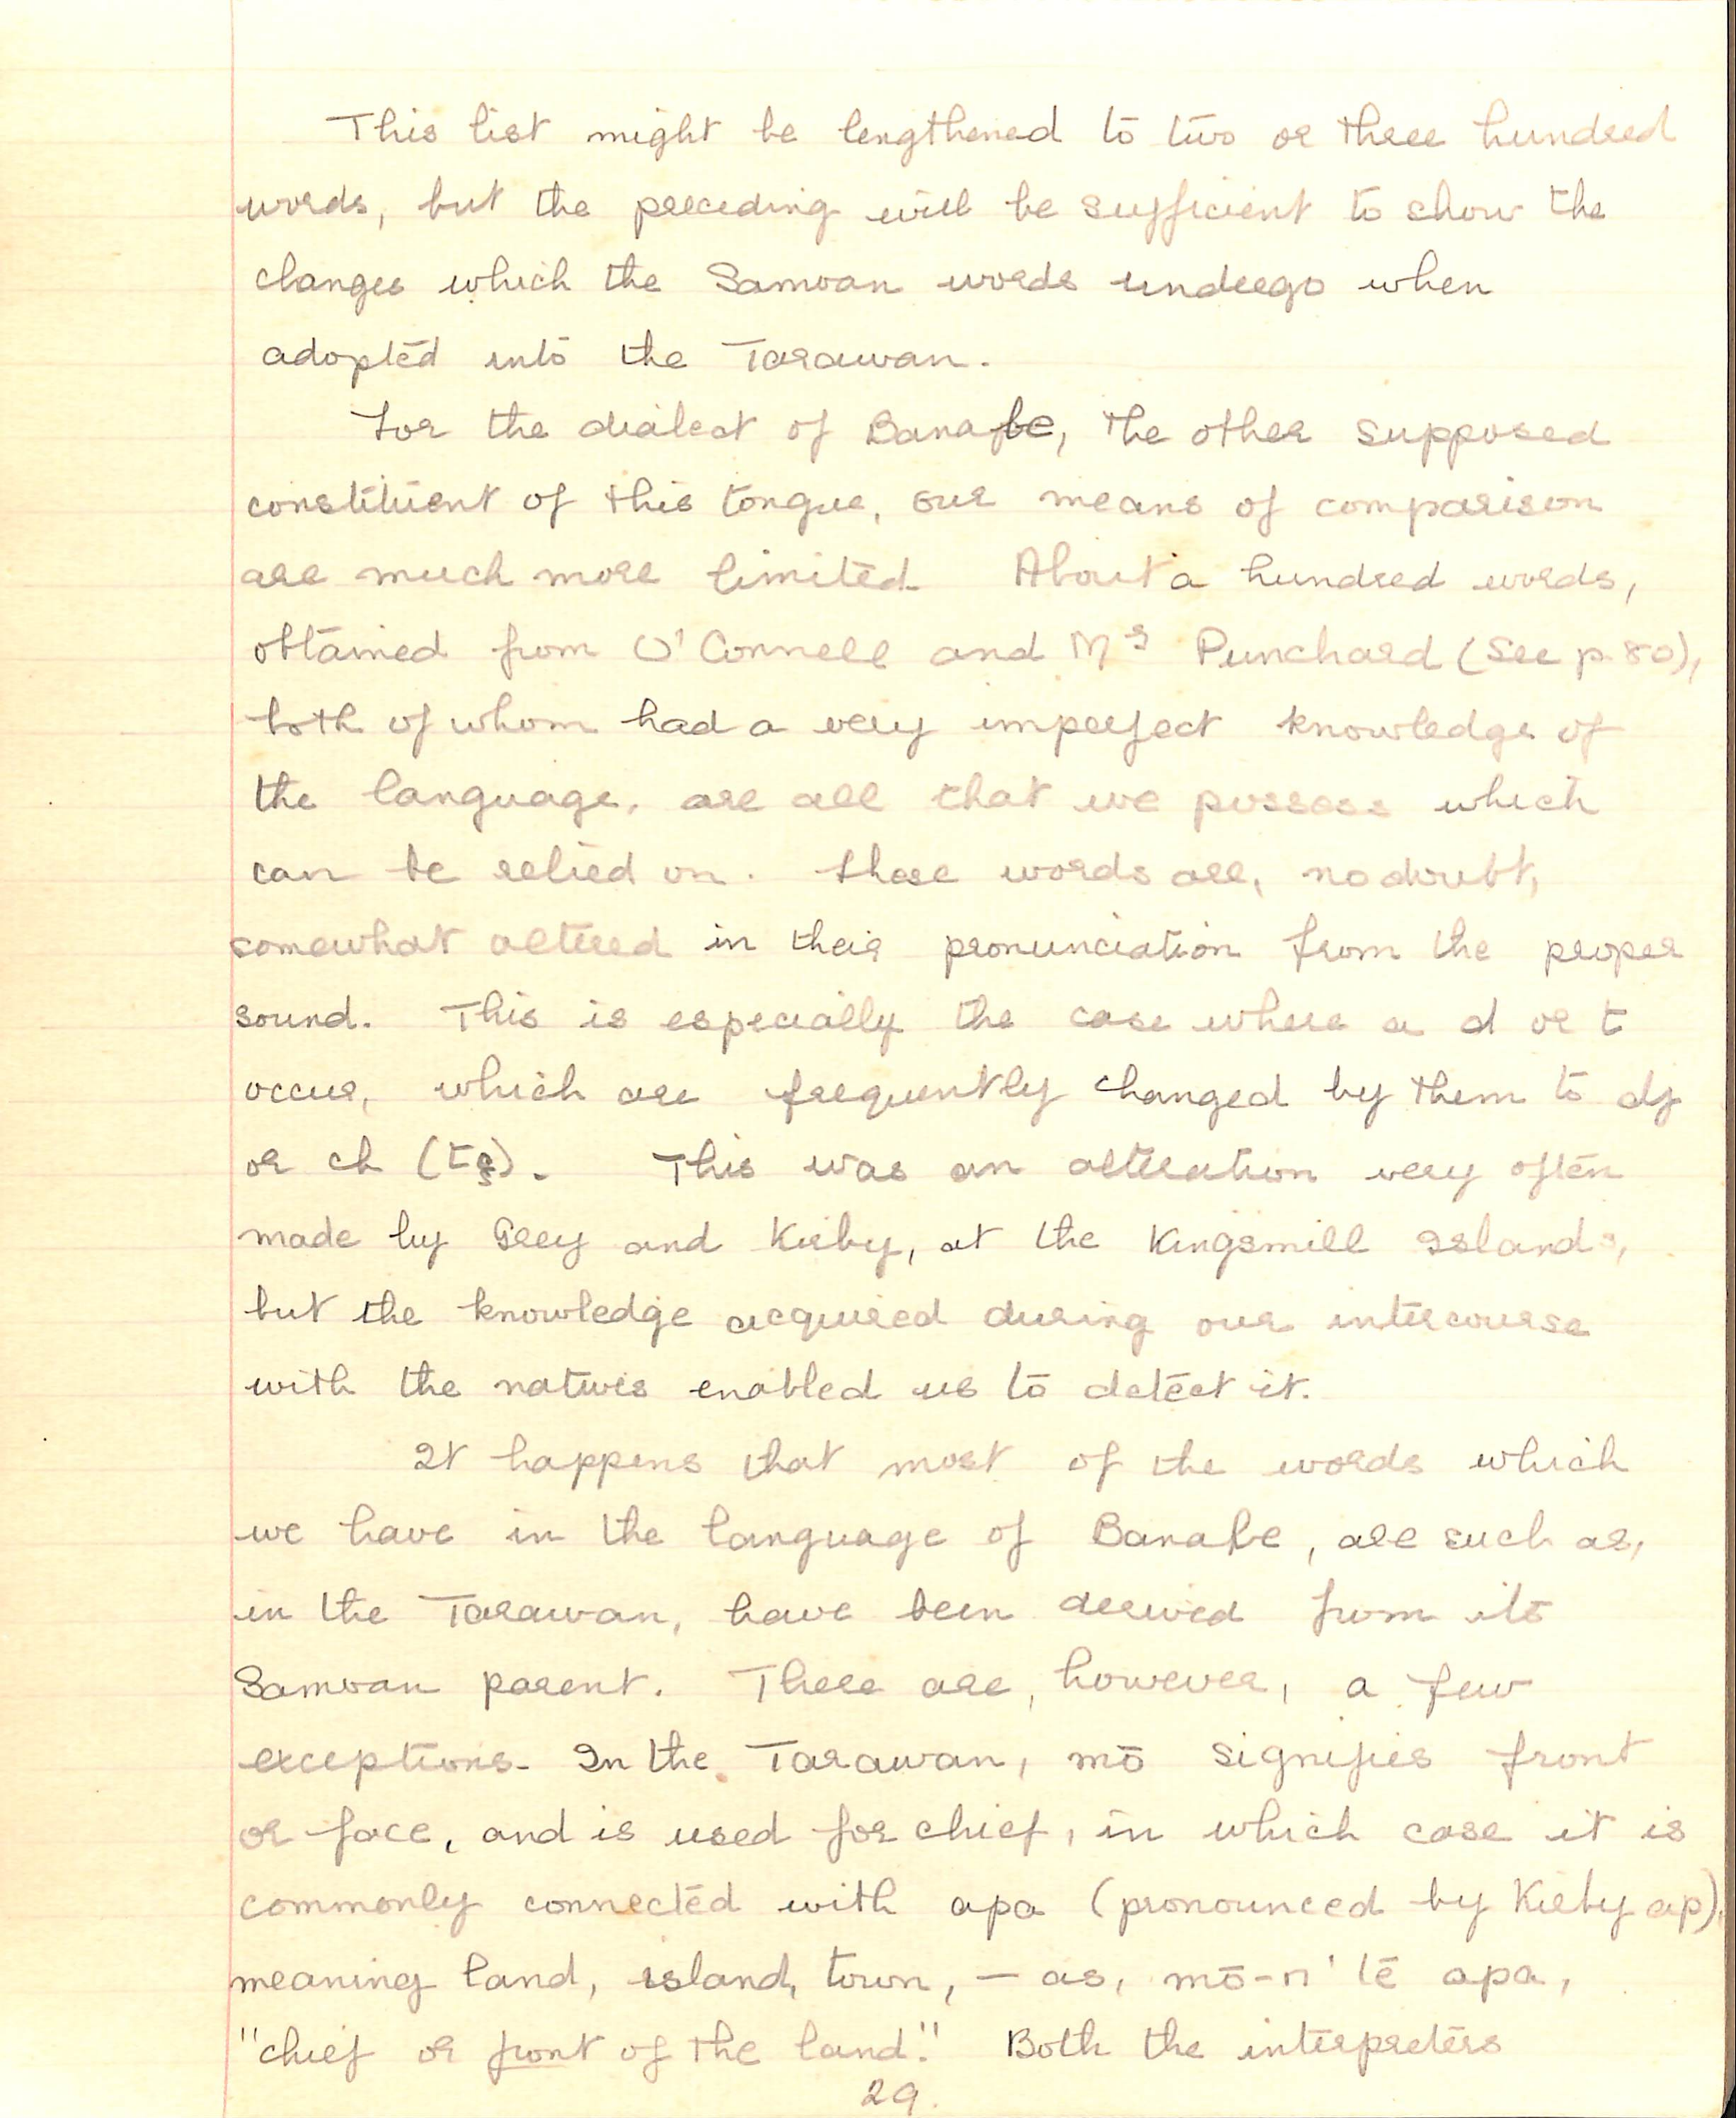 This list might be lengthened to two or three hundred
words, but the preceding will be sufficient to show the
changes which the Samoan words undergo when
adopted into the Tarawan.
For the dialect of Banabe, the other supposed
constituent of this tongue, our means of comparison
are much more limited. About a hundred words,
obtained from O'Connell and Mr Punchard (See p. 80),
both of whom had a very imperfect knowledge of
the language, are all that we possess which
can be relied on. These words are, no doubt,
somewhat altered in their pronunciation from the proper
sound. This is especially the case where a d or t
occur, which are frequently changed by them to dj
or ch (tş).  This was an alteration very often
made by Grey and Kirby, at the Kingsmill Islands,
but the knowledge acquired during our intercourse
with the natives enabled us to detect it.
It happens that most of the words which
we have in the language of Banabe, are such as,
in the Tarawan, have been derived from its
Samoan parent. There are, however, a few
exceptions. In the Tarawan, mō signifies front
or face, and is used for chief, in which case it is
commonly connected with apa (pronounced by Kirby ap),
meaning land, island, town, — as, mō-n' te apa,
"chief or front of the land." Both the interpreters
29.